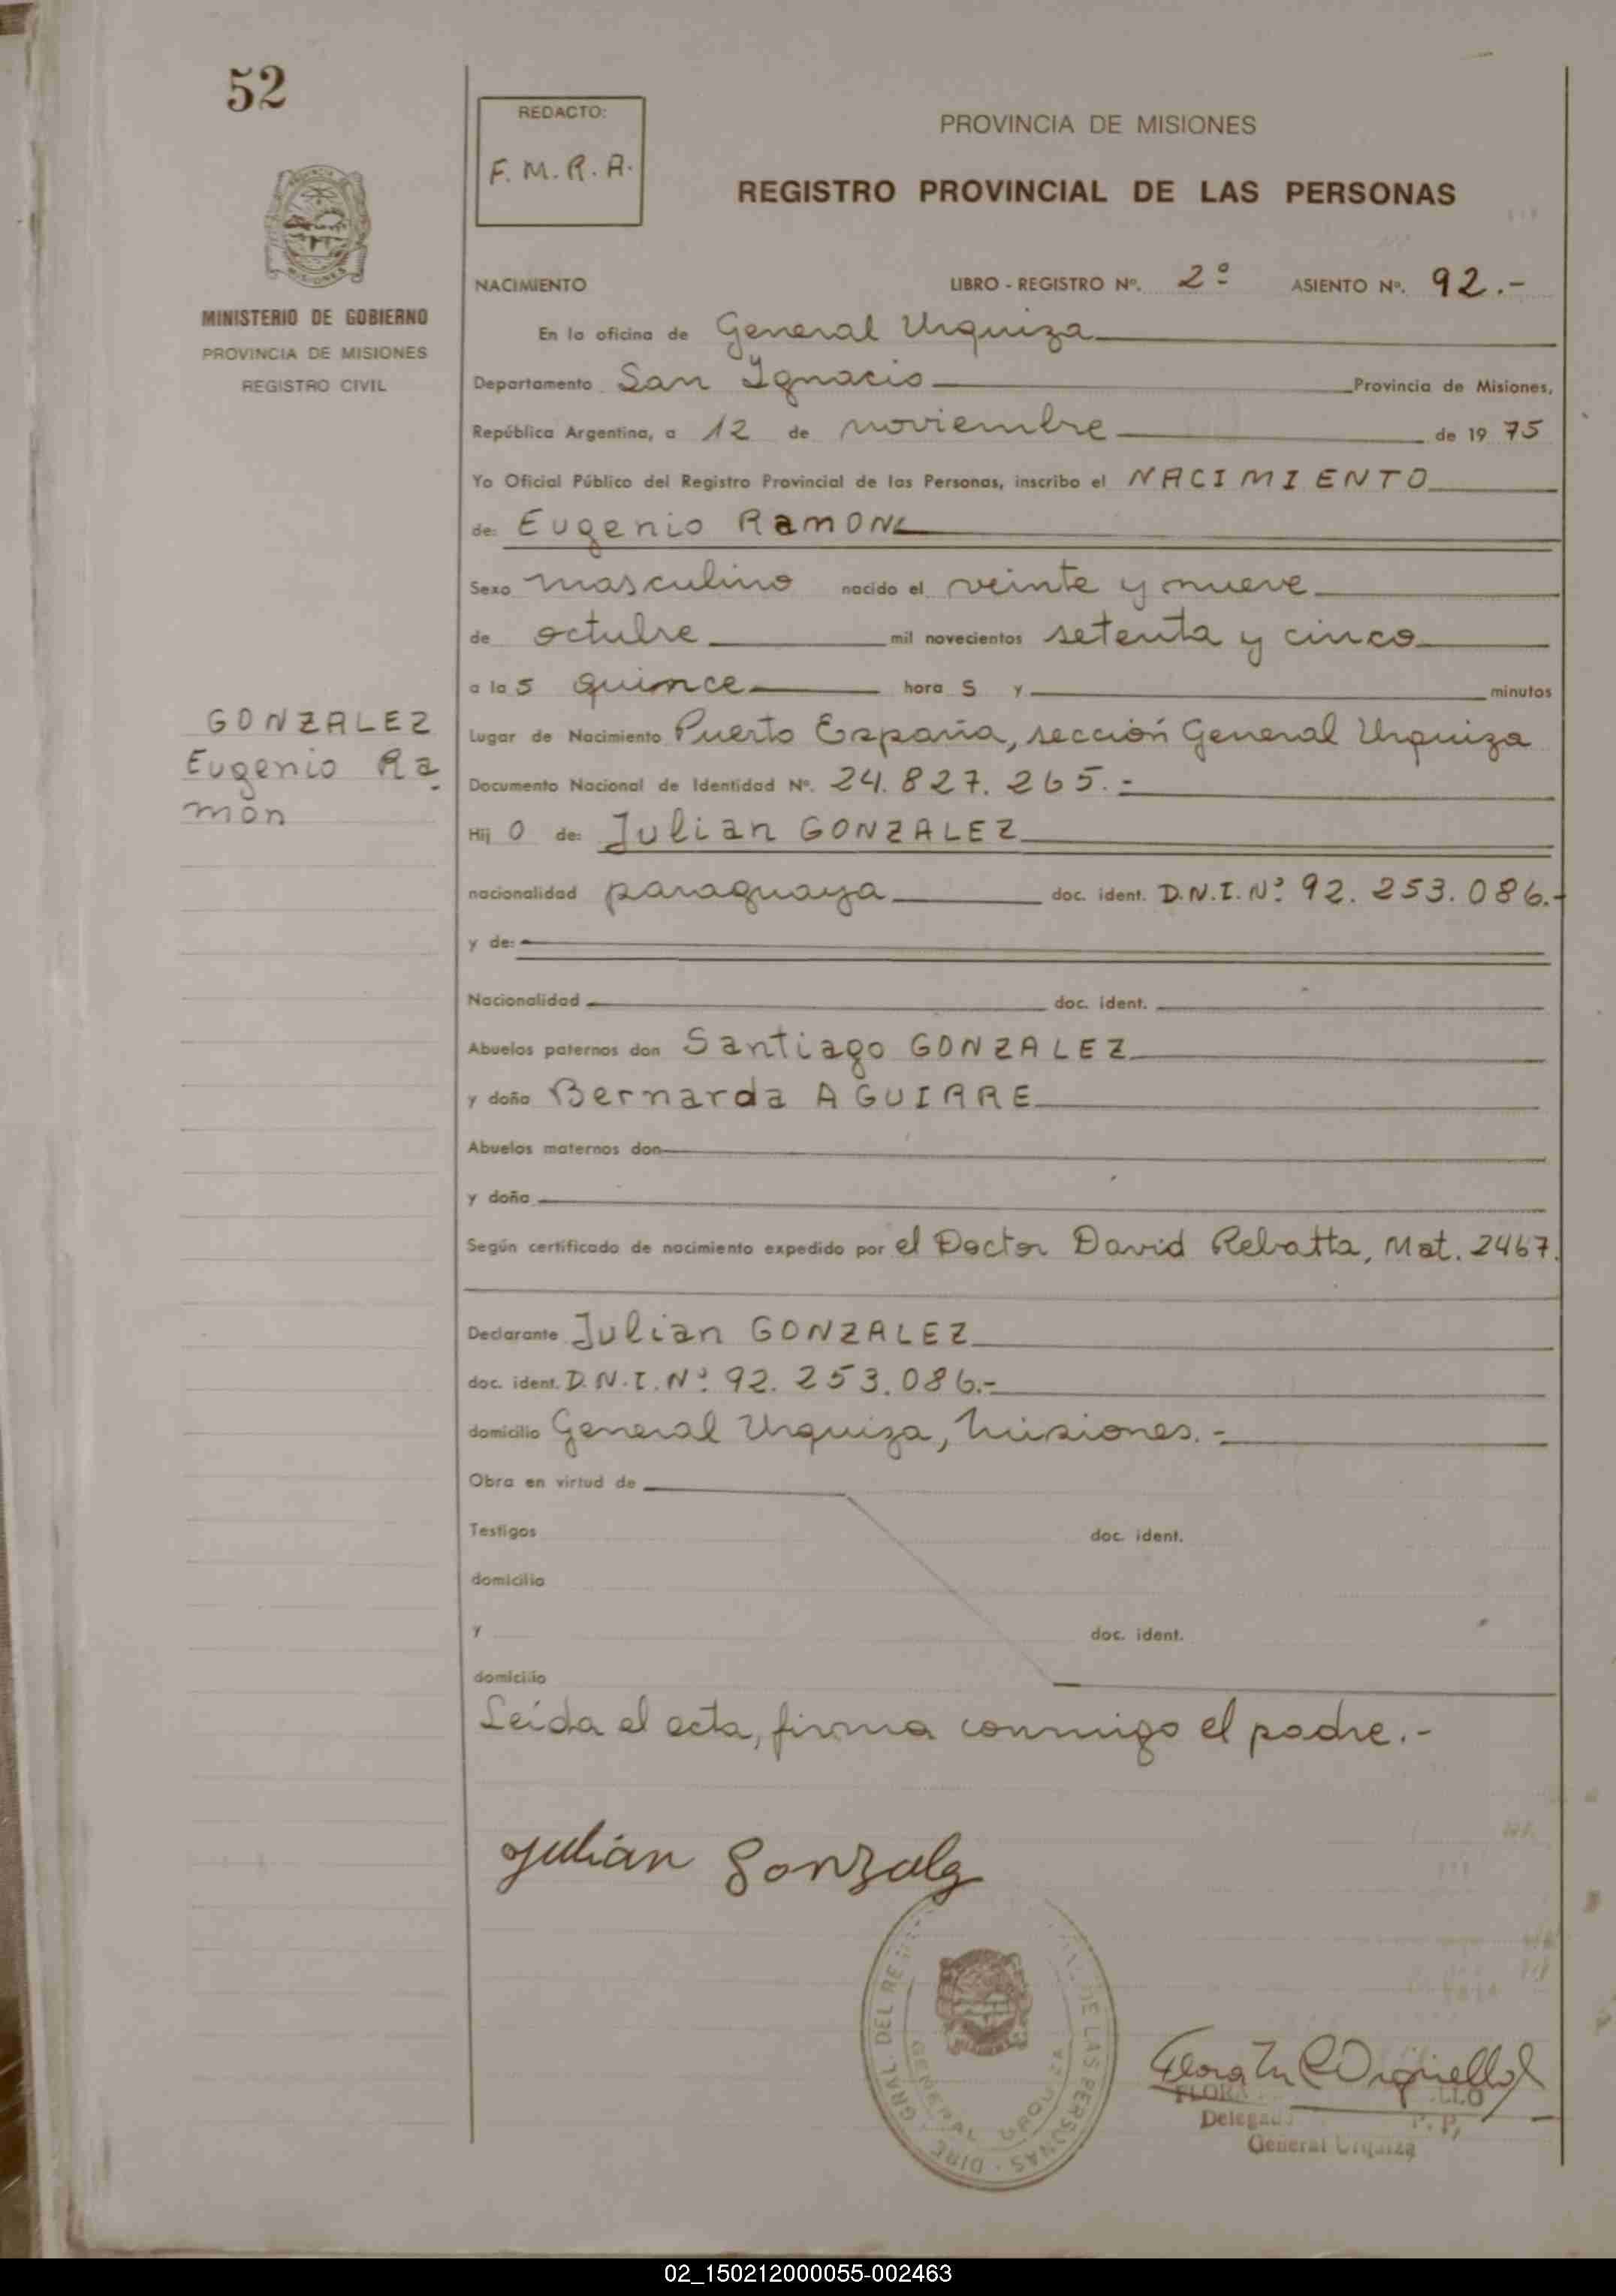 52
REDACTO:
F. M. R. A.
PROVINCIA DE MISIONES
REGISTRO PROVINCIAL DE LAS PERSONAS
MINISTERIO DE GOBIERNO
PROVINCIA DE MISIONES
REGISTRO CIVIL
NACIMIENTO LIBRO - REGISTRO Nº. 2º ASIENTO Nº. 92.-
En la oficina de General Urquiza
Departamento San Ignacio Provincia de Misiones,
República Argentina, a 12 de noviembre de 19 75
Yo Oficial Público del Registro Provincial de las Personas, inscribo el NACIMIENTO
de: Eugenio RAMON
Sexo masculino nacido el veinte y nueve
de octubre mil novecientos setenta y cinco
a las quince hora s y minutos
GONZALEZ
Eugenio Ra
mon
Lugar de Nacimiento Puerto España, sección General Urquiza
Documento Nacional de Identidad Nº. 24.827.265.-
Hij o de: Julian GONZALEZ
nacionalidad paraguaya doc. ident. D.N.I.Nº 92.253.086.-
y de:
Nacionalidad doc. ident.
Abuelos paternos don Santiago GONZALEZ
y doña Bernarda AGUIRRE
Abuelos maternos don
y doña
Según certificado de nacimiento expedido por el Doctor David Rebatta, Mat. 2467.
Declarante Julian GONZALEZ
doc. ident. D.N.I.Nº 92.253.086.-
domicilio General Urquiza, Misiones.-
Obra en virtud de
Testigos doc. ident.
domicilio
y doc. ident.
domicilio
Leída el acta, firma conmigo el padre.-
Julián Gonzalez
DE LAS PERSONAS - DIRE GRAL. DEL RE
GENERAL URQUIZA
Flora
FLORA LLO
Delegad P.P,
General Urquiza
02_150212000055-002463